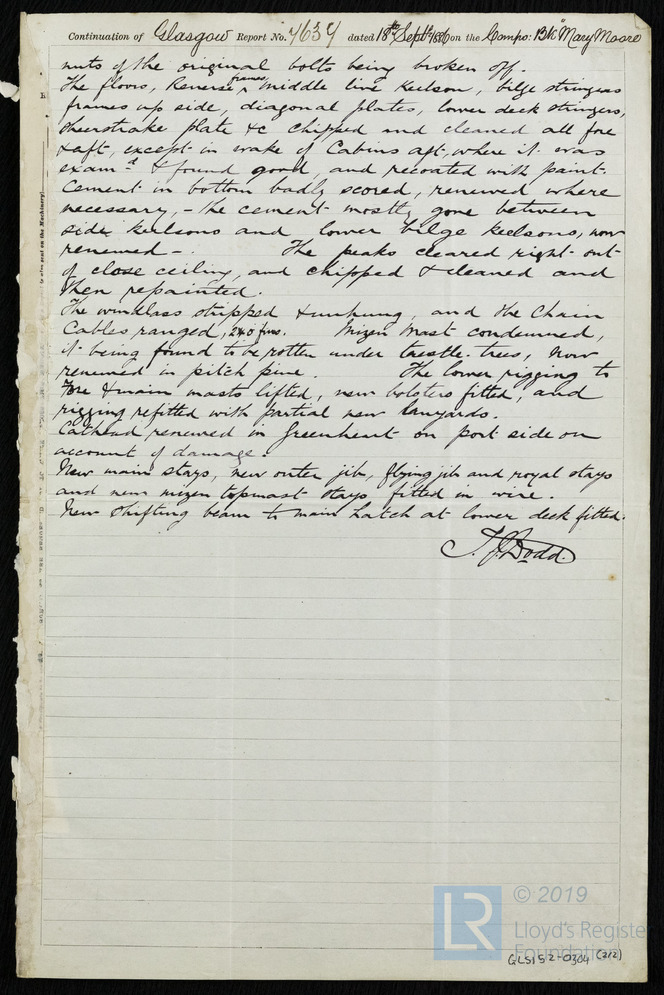 Continuation of Glasgow Report No. 7637 dated 18th Septr 1886 on the Compo: Bk "Mary Moore
nuts of the original bolts being broken off.
The floors, Reverse frames, middle line Keelson, bilge stringers
frames up side, diagonal plates, lower deck stringers,
sheerstrake plate &c chipped and cleaned all fore
& aft, except in wake of Cabins aft, where it was
examd & found good, and recoated with paint.
Cement in bottom badly scored, renewed where
necessary, – the cement mostly gone between
side keelsons and lower bilge keelsons, now
renewed – . The peaks cleared right out
of close ceiling, and chipped & cleaned and
then repainted.
The windlass stripped & unhung, and the Chain
Cables ranged, 240 fms. Mizen Mast condemned,
it being found to be rotten under trestle-trees, now
renewed in pitch pine. The lower rigging to
Fore & main masts lifted, new bolsters fitted, and
rigging refitted with partial new lanyards.
Cathead renewed in Greenheart on port side on
account of damage.
New main stays, new outer jib, flying jib and royal stays
and new mizen topmast stays fitted in wire.
New shifting beam to main hatch at lower deck fitted.
J. J. Dodd.
LR
© 2019
Lloyd's Register
Foundation
GLS152-0304 (2/2)